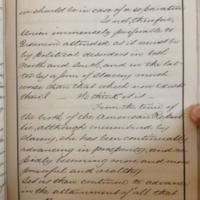 or should be in case of a separation
Is not, therefore,
Union immensely preferable to
Disunion attended as it must be
by political disorders in both
North and South, and in the lat
ter by a form of slavery much
worse than that which now exists
there? — We think it is —
From the time of
the birth of the American Repub
lic, although encumbered by
slavery, she has been continually
advancing in prosperity, and ra
pidly becoming more and more
powerful and wealthy.
Let us then continue to advance
in the attainment of all that